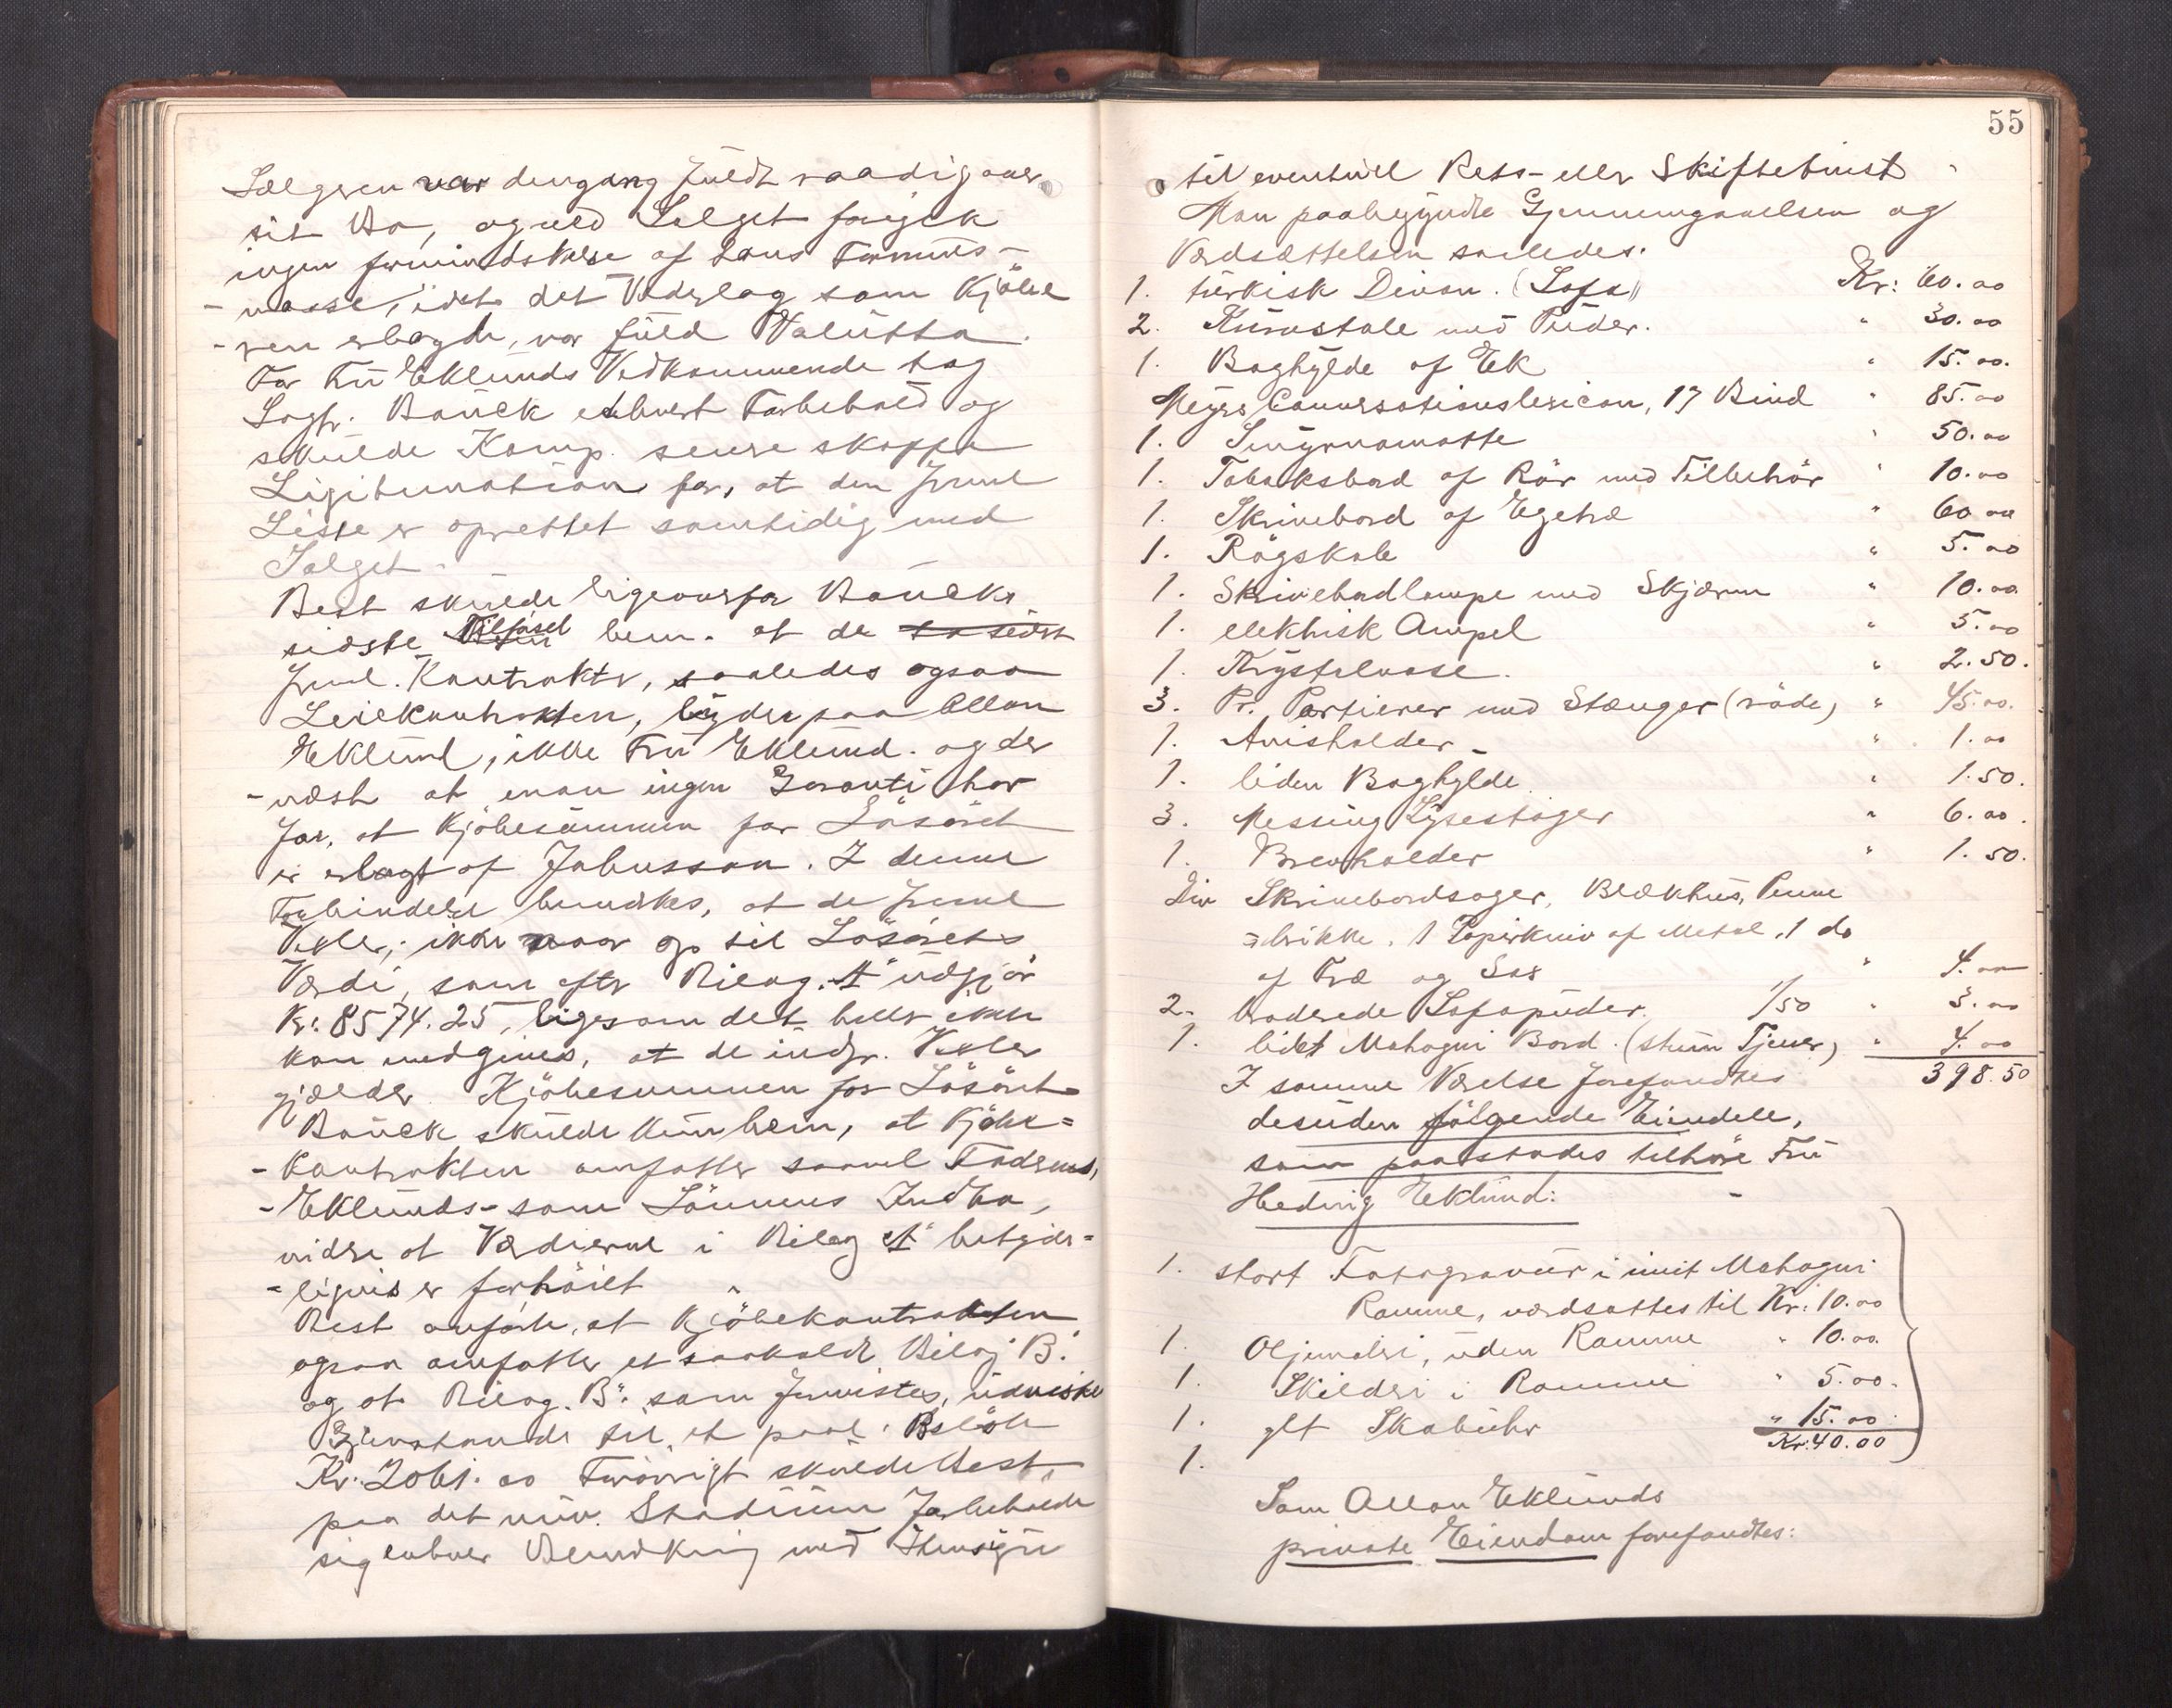 Sælgeren var dengang fuldt raadig over
sit Bo, og ved Salget foregik
ingen formindskelse af hans Formues-
-masse, idet det Vederlag som Kjöbe
-ren erlagde, var fuld Valutta.
For Fru Eklunds Vedkommende tog
Sagf. Bauck ethvert Forbehold og
skulde Komp. senere skaffe
Legitimation for, at den freml
Liste er oprettet samtidig med
Salget.
Best skulde ligeoverfor Baucks
sidste Tilförsel bem. at de to sidst
freml. Kontrakter, saaledes ogsaa
Leiekontrakten, lyder paa Allan
Eklund, ikke Fru Eklund. og der
-næst at man ingen Garanti har
for, at Kjöbesummen for Lösöret
er erlagt af Johnsson. I denne
Forbindelse bemærkes, at de freml
Vexler, ikke naar op til Lösörets
Værdi, som efter Bilag. "A" udgjör
Kr: 8574.25, ligesom det heller ikke
kan medgives, at de indfr. Vexler
gjælder Kjöbesummen for Lösöret
Bauck skulde kun bem, at Kjöbe=
-kontrakten omfatter saavel Faderens,
-Eklunds- som Sönnens Indbo,
videre at Værdierne i Bilag "A" betyde=
-ligvis er forhöiet
Best anförte, at Kjöbekontrakten
ogsaa omfatter et saakaldt Bilag "B".
og at Bilag. B": som fremvistes, udviser
Gjenstande til et paal. Belöb
Kr. 2061.00 Forövrigt skulde Best.
paa det nuv. Stadium forbeholde
sig enhver Bemærkning med Hensyn
55
til eventuel Rets- eller Skiftetvist
Man paabegyndte Gjennemgaaelsen og
Værdsættelsen saaledes.
1. türkisk Divan. (Sofa) Kr: 60.00
2. Kurvstole med Puder. " 30.00
1. Boghylde af Ek " 15.00.
Meyers Conversationslexicon, 17 Bind " 85.00
1. Smyrnamatte " 50.00
1. Tobaksbord af Rör med Tilbehör " 10.00
1. Skrivebord af Egetræ " 60.00
1. Rögskab " 5.00
1. Skrivebordlampe med Skjærm " 10.00
1. elektrisk Ampel " 5.00
1. Krystalvase. " 2.50.
3. Pr. Portierer med Stænger (röde) " 45.00.
1. Avisholder " 1.00
1. liden Boghylde. " 1.50.
3. Messing Lysestager " 6.00.
1. Brevholder " 1.50.
Div Skrivebordsager, Blækhus, Penne
=brikke, 1 Papirkniv af Metal, 1 do
af Træ og Sax " 4.00
2. broderede Sofapuder. 1/50 " 3.00
1. lidet Mahogni Bord. (stum Tjener) " 4.00
I samme Værelse forefandtes 398.50
desuden fölgende Eiendele,
som paastodes tilhöre Fru
Hedvig Eklund:
1. stort Fotogravür i imit Mahogni
Ramme, værdsattes til Kr: 10.00
1. Oljemaleri, uden Ramme " 10.00.
1. Skilderi i Ramme " 5.00.
1. glt Skabuhr " 15.00
1. Kr: 40.00
Som Allan Eklunds
private Eiendom forefandtes: